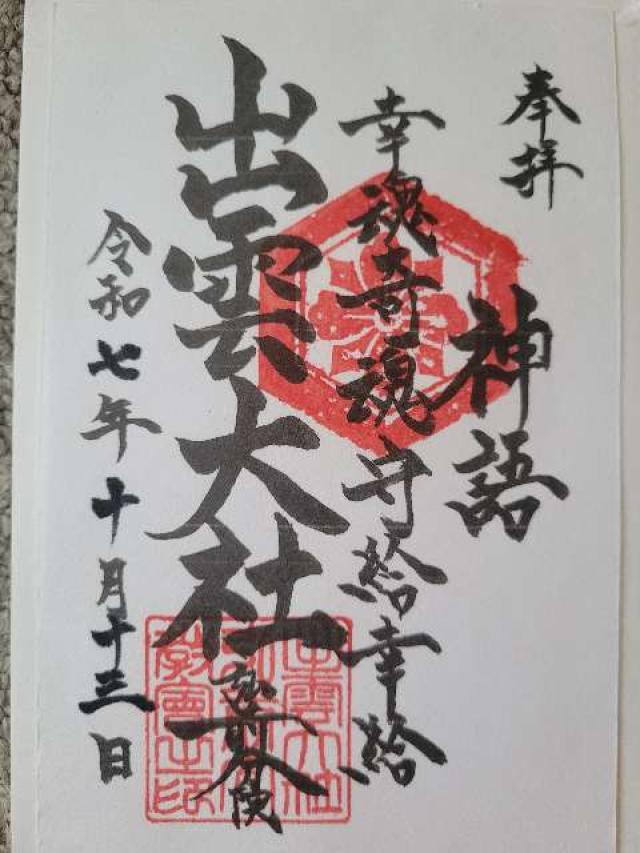 奉拝
神語
幸魂奇魂守給幸給
出雲大社
越前分院
令和七年十月十三日
出雲大社
教會之印